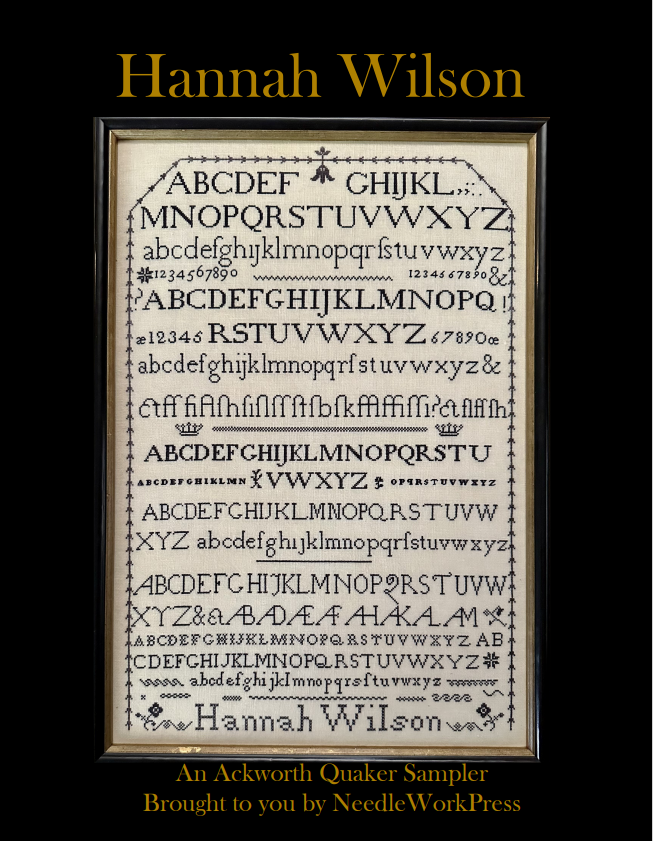 Hannah Wilson
ABCDEF GHIJKL
MNOPQRSTUVWXYZ
abcdefghıjklmnopqrſstuvwxyz
1234567890 1234567890 &
? ABCDEFGHIJKLMNOPQ !
æ 12345 RSTUVWXYZ 67890 œ
abcdefghijklmnopqrſstuvwxyz&
ABCDEFGHIJKLMNOPQRSTU
ABCDEFGHIKLMN VWXYZ OPQRSTUVWXYZ
ABCDEFGHIJKLMNOPQRSTUVW
XYZ abcdefghıjklmnopqrſstuvwxyz
ABCDEFGHIJKLMNOPQRSTUVW
XYZ&
ABCDEFGHIJKLMNOPQRSTUVWXYZ AB
CDEFGHIJKLMNOPQRSTUVWXYZ
abcdefghijklmnopqrsſtuvwxyz
Hannah Wilson
An Ackworth Quaker Sampler
Brought to you by NeedleWorkPress